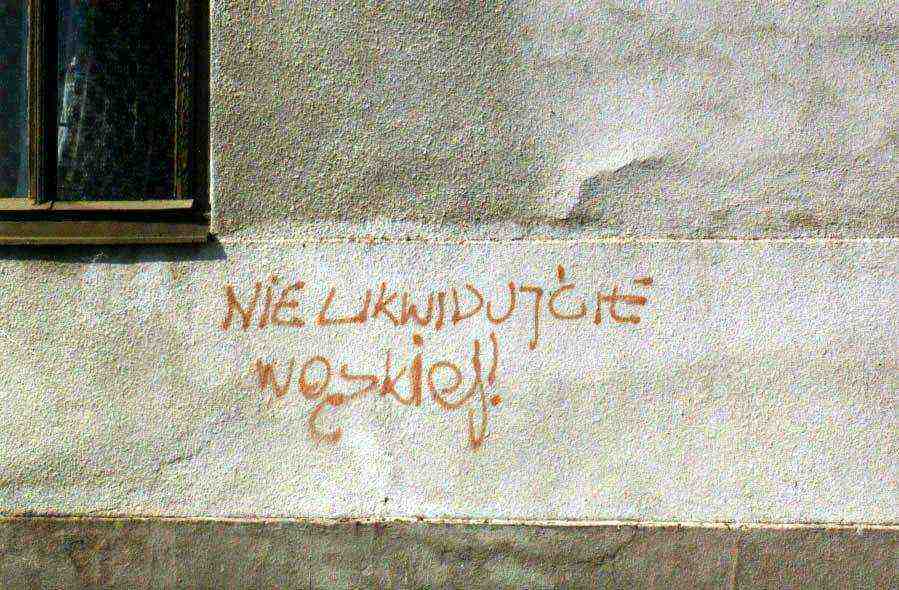 NIE LIKWIDUJĆIE
wąskiej!